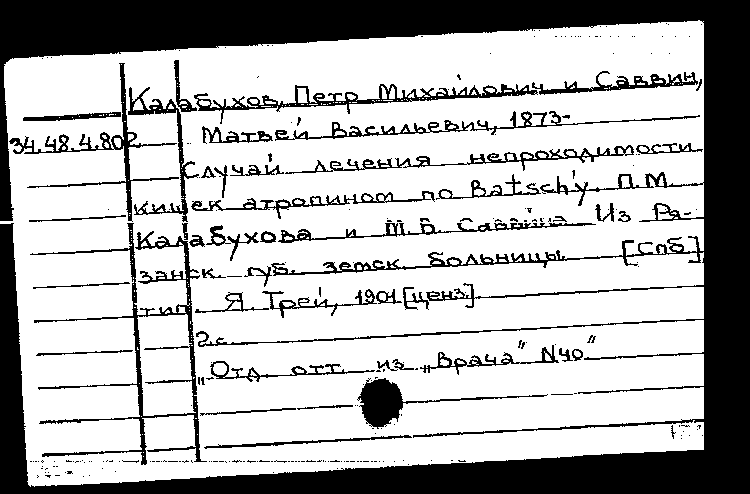 Калабухов, Петр Михайлович и Саввин,
34.48.4.802 Матвей Васильевич, 1873-
Случай лечения непроходимости
кишек атропином по Batsch'y. П.М.
Калабухова и М.В. Саввина Из Ря-
занск. губ. земск. больницы. [Спб],
тип. Я. Трей, 1901 [ценз].
2 с.
„Отд. отт. из „Врача" N40"